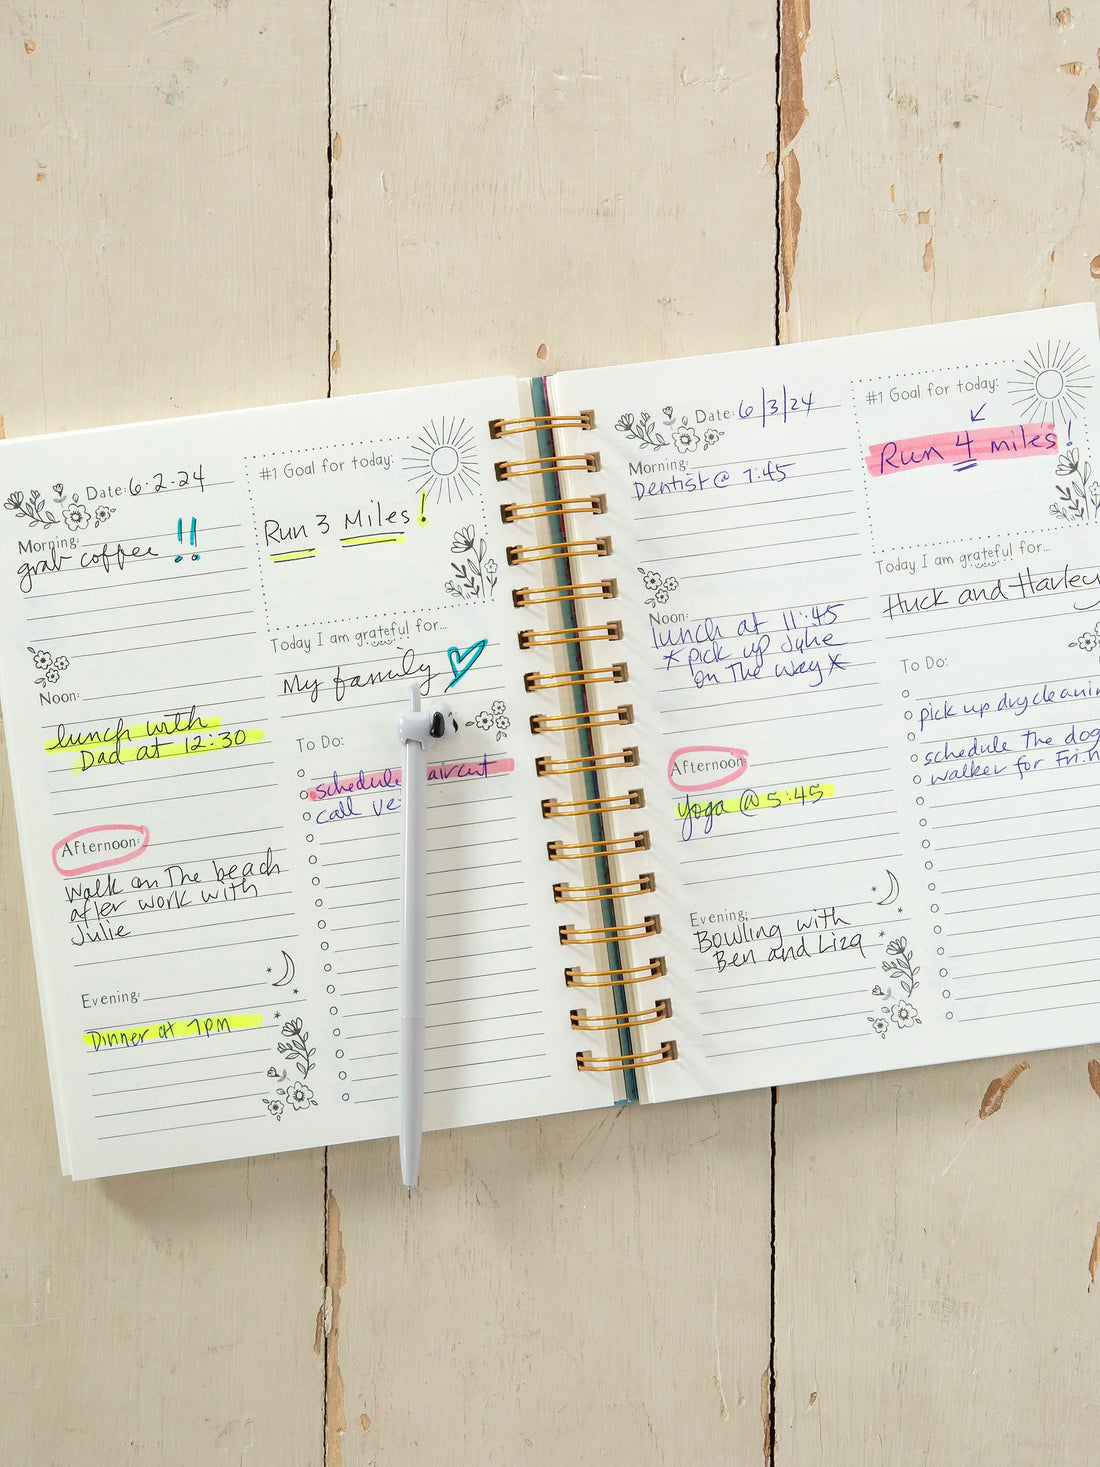 Date: 6·2·24
Morning:
grab coffee !!
Noon:
lunch with
Dad at 12:30
Afternoon:
Walk on The beach
after work with
Julie
Evening:
Dinner at 7pm
#1 Goal for today:
Run 3 Miles!
Today I am grateful for...
My family
To Do:
schedule aircut
call ve
Date: 6/3/24
Morning:
Dentist @ 7:45
Noon:
lunch at 11:45
* pick up Julie
on The way *
Afternoon:
yoga @ 5:45
Evening:
Bowling with
Ben and Liza
#1 Goal for today:
Run 4 miles!
Today I am grateful for...
Huck and Harley
To Do:
pick up drycleanin
schedule the dog
walker for Fri.